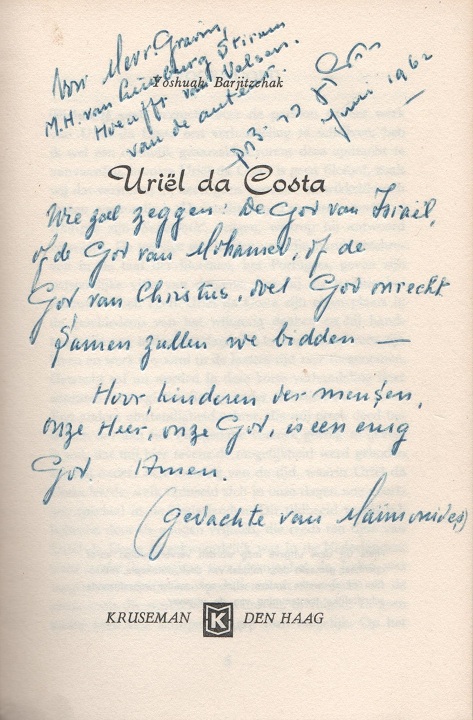 Voor Mevr. Gravin,
M.H. van Limburg Stirum
Hoeufft van Velsen.
van de auteur.
Yoshuah Barjitzchak
Juni 1962
Uriël da Costa
Wie zal zeggen: De God van Israël,
of de God van Mohamed, of de
God van Christus, doet God onrecht
Samen zullen we bidden —
Hoor, kinderen der mensen,
onze Heer, onze God, is een enig
God. Amen.
(gedachte van Maimonides)
KRUSEMAN K DEN HAAG